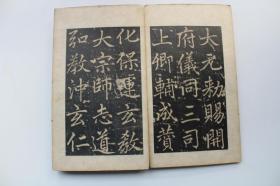 大元勑賜開
府儀同三司
上卿輔成賛
化保運玄教
大宗師志道
弘教沖玄仁